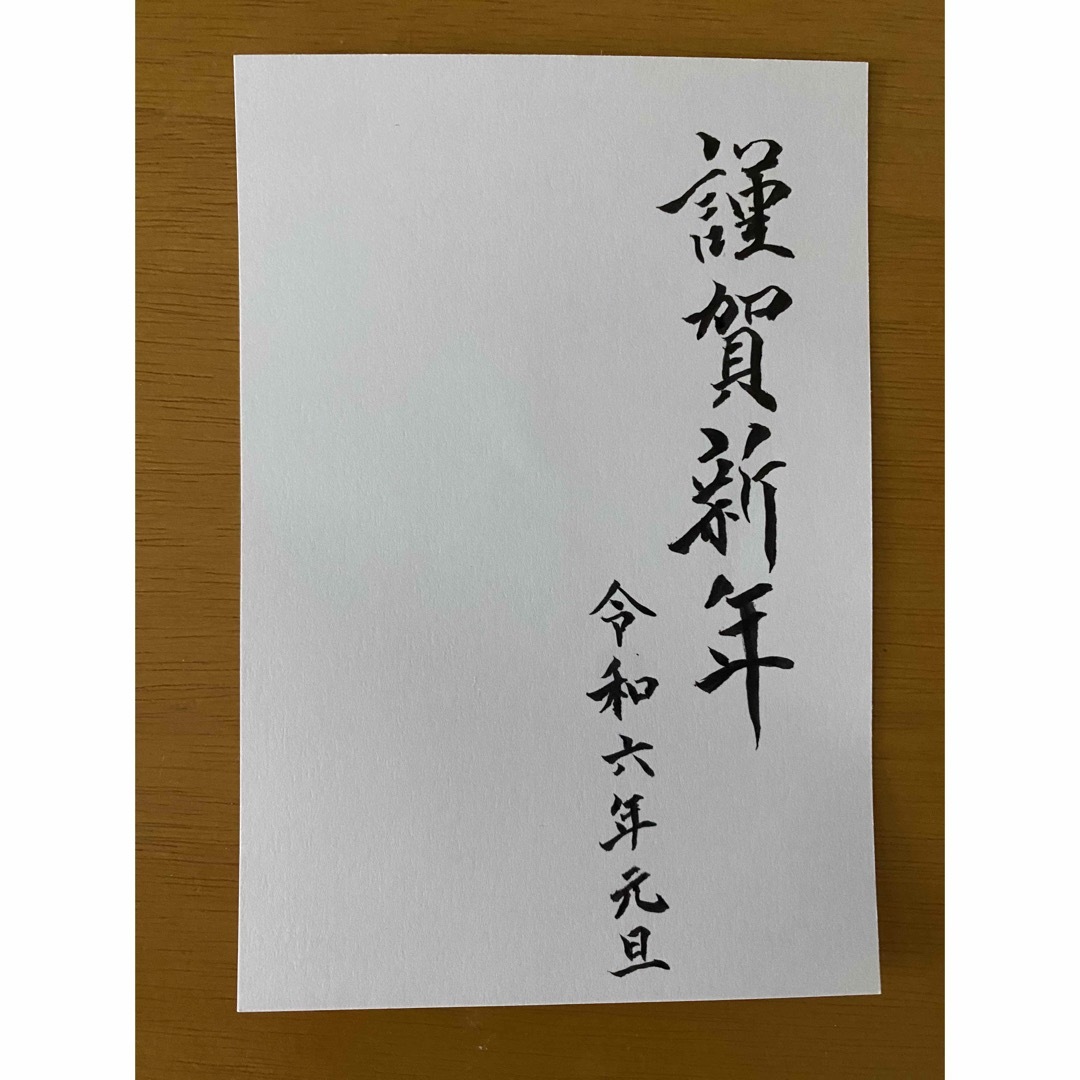 謹賀新年
令和六年元旦